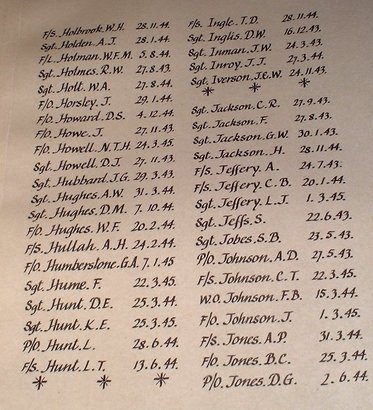 F/S. Holbrook. W.H. 28.11.44.
Sgt. Holden. A.J. 28.1.44.
F/L. Holman. W.F.M. 5.8.44.
Sgt. Holmes. R.W. 27.8.43.
Sgt. Holt. W.A. 27.8.44.
F/O. Horsley. J. 29.1.44.
F/O. Howard. D.S. 4.12.44.
F/O. Howe. J. 27.11.43.
F/O. Howell. N.T.H. 24.3.45.
Sgt. Howell. D.J. 27.11.43.
Sgt. Hubbard. J.G. 29.3.43.
Sgt. Hughes. A.W. 31.3.44.
Sgt. Hughes. D.M. 7.10.44.
F/O. Hughes. W.F. 20.2.44.
F/S. Hullah. A.H. 24.2.44.
F/O. Humberstone. G.A. 7.1.45
Sgt. Hume. F. 22.3.45.
Sgt. Hunt. D.E. 25.3.44.
Sgt. Hunt. K.E. 25.3.45.
P/O. Hunt. L. 28.6.44.
F/S. Hunt. L.T. 13.6.44.
F/S. Ingle. T.D. 28.11.44.
Sgt. Inglis. D.W. 16.12.43.
Sgt. Inman. J.W. 24.3.43.
Sgt. Inroy. J.T. 27.3.44.
Sgt. Iverson. J.E.W. 24.11.43.
Sgt. Jackson. C.R. 27.9.43.
Sgt. Jackson. F. 27.8.43.
Sgt. Jackson. G.W. 30.1.43.
Sgt. Jackson. H. 28.11.44.
F/S. Jeffery. A. 24.7.43.
F/S. Jeffery. C.B. 20.1.44.
Sgt. Jeffery. L.J. 1.3.45.
Sgt. Jeffs. S. 22.6.43.
Sgt. Jobes. S.B. 23.5.43.
P/O. Johnson. A.D. 27.5.43.
F/S. Johnson. C.T. 22.3.45.
W.O. Johnson. F.B. 15.3.44.
F/O. Johnson. J. 1.3.45.
F/S. Jones. A.P. 31.3.44.
F/O. Jones. B.C. 25.3.44.
P/O. Jones. D.G. 2.6.44.